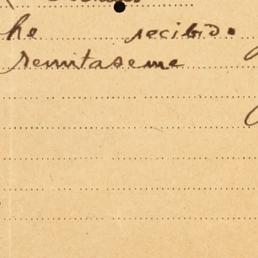 he recibido.
remitaseme